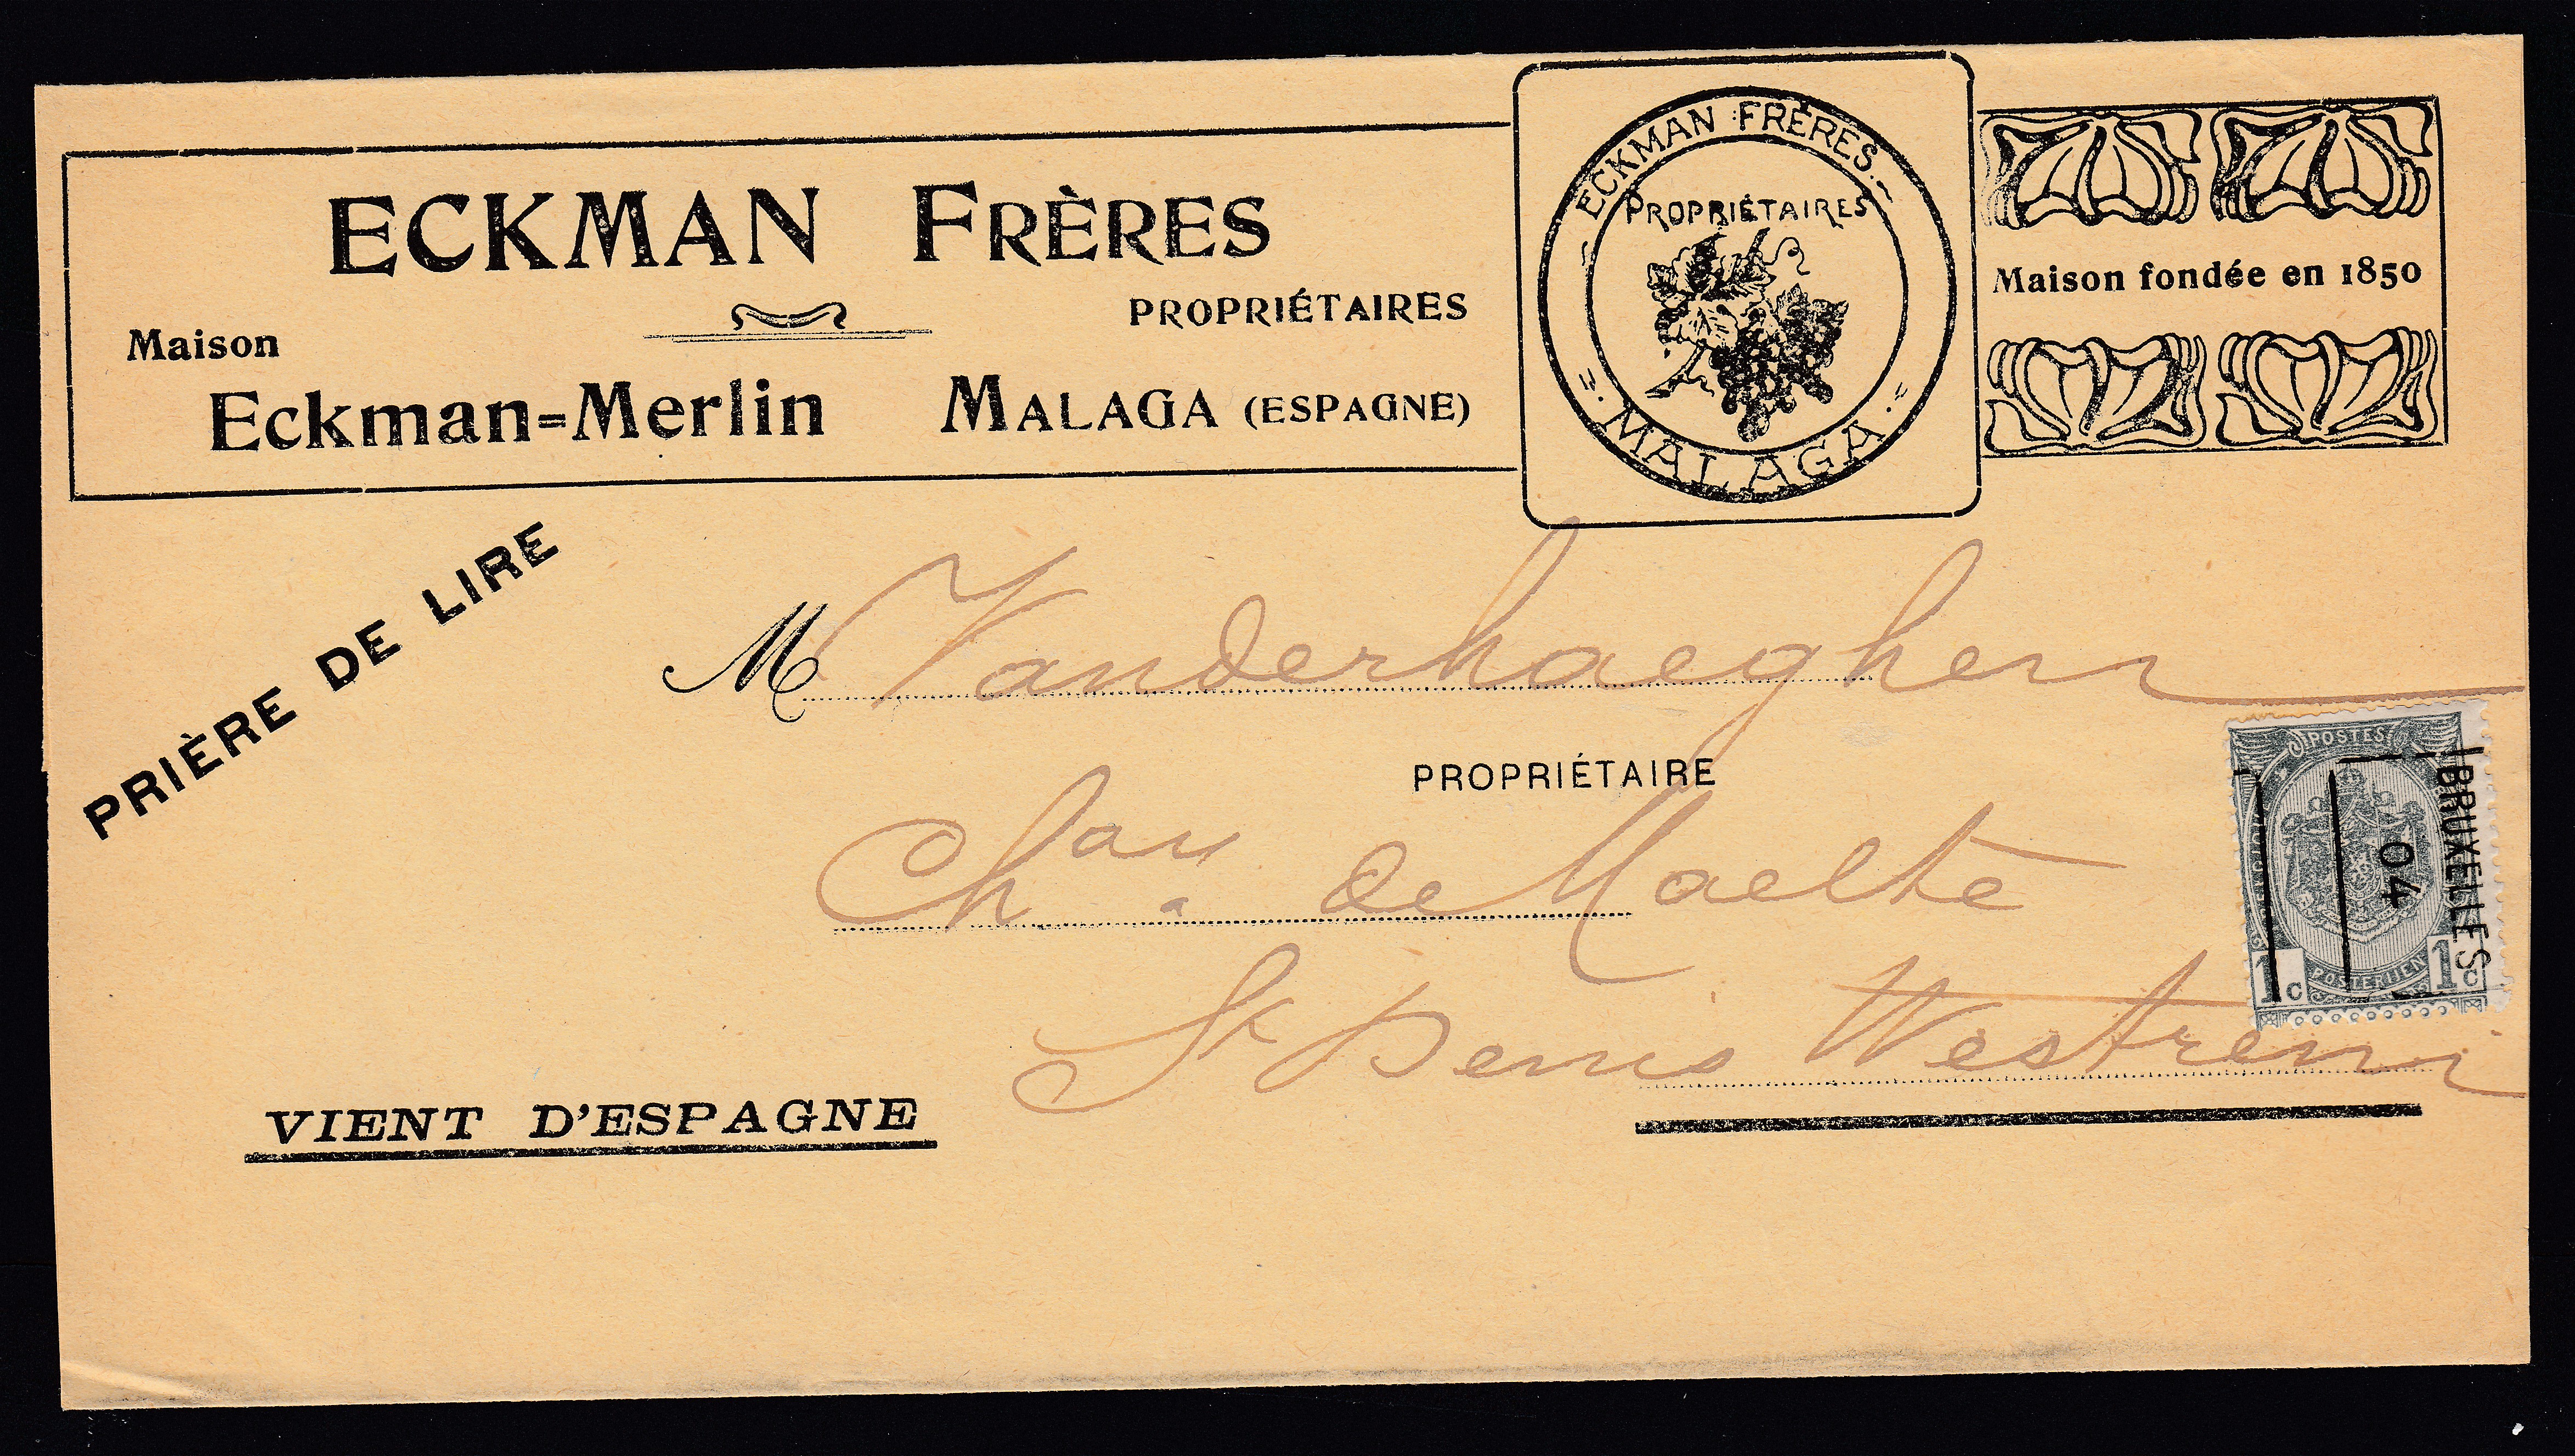 ECKMAN FRÈRES
PROPRIÉTAIRES
Maison
Eckman=Merlin MALAGA (ESPAGNE)
ECKMAN FRÈRES.
PROPRIÉTAIRES
MALAGA.
Maison fondée en 1850
PRIÈRE DE LIRE
M Vanderhaeghen
PROPRIÉTAIRE
Ch au de Maelte
St Denis Westrem
VIENT D'ESPAGNE
POSTES
BRUXELLES
04
1c POSTERIJEN 1c